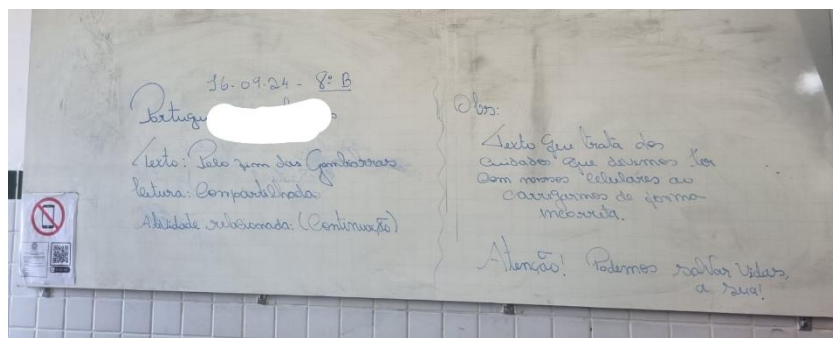 16.09.24 - 8º B
Portugu
Texto: Pelo fim das Gambiarras
Leitura: Compartilhada
Atividade relacionada: (Continuação)
Obs:
Texto que trata dos
cuidados que devemos ter
com nossos celulares ao
carregarmos de forma
incorreta.
Atenção! Podemos salvar vidas,
a sua!